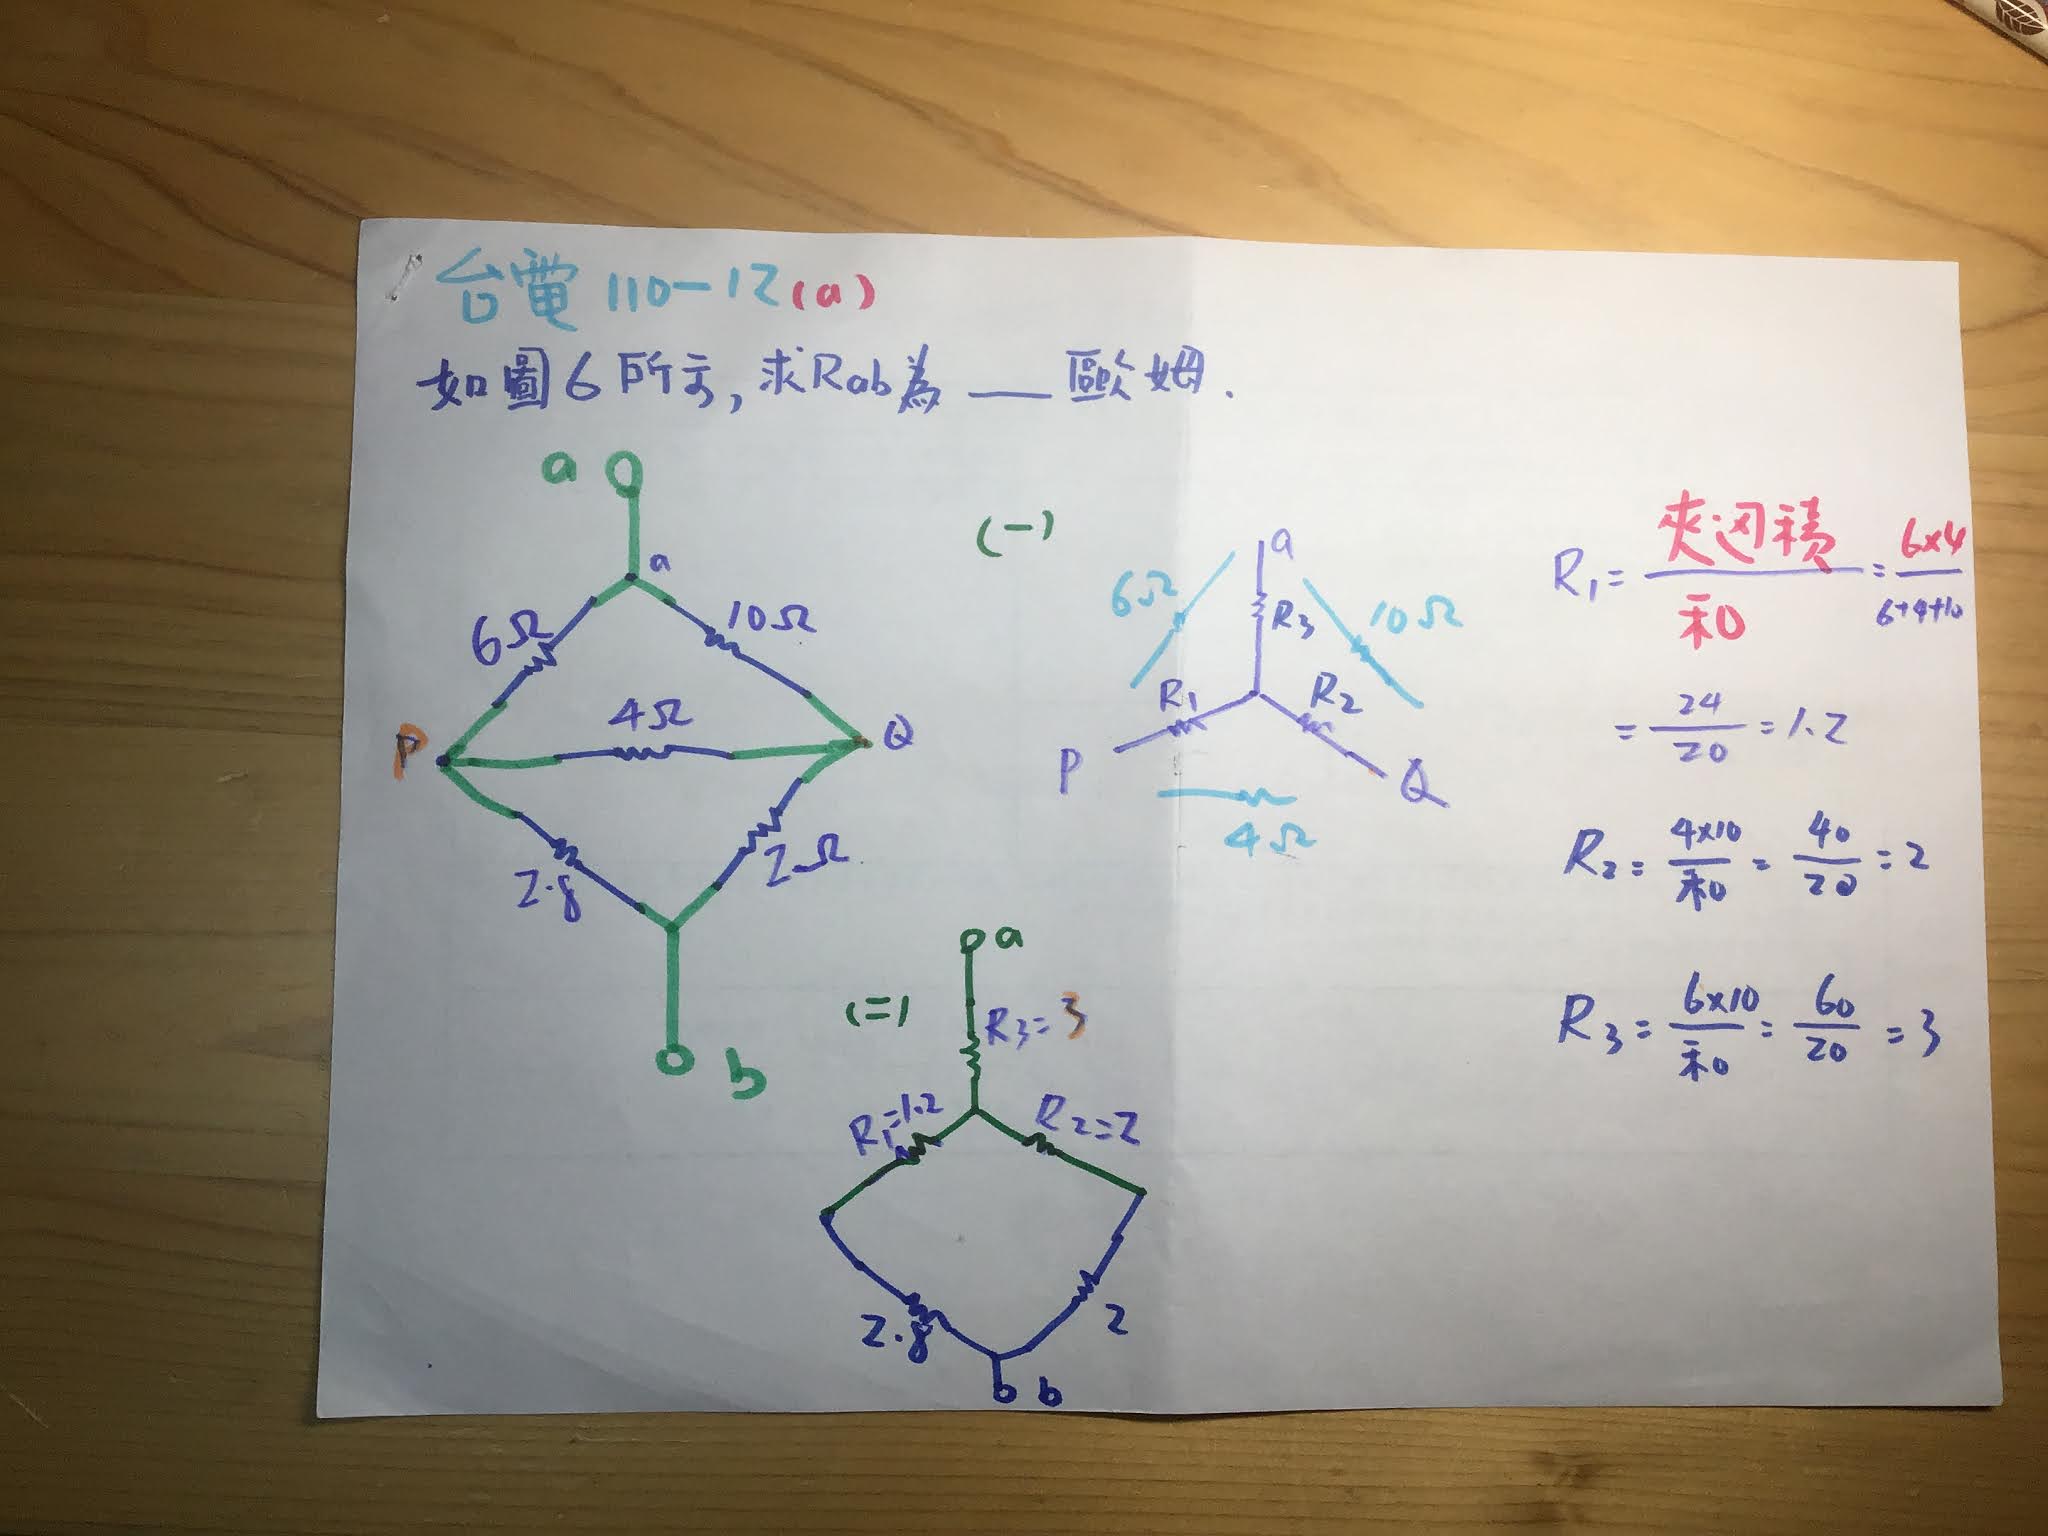 台電110-12(a)
如圖6所示,求Rab為___歐姆.
a
a
6Ω
10Ω
P
4Ω
Q
2.8
2Ω
b
(一)
a
6Ω
R3
10Ω
R1
R2
P
Q
4Ω
R1=夾边積/和=6x4/6+4+10
=24/20=1.2
R2=4x10/和=40/20=2
R3=6x10/和=60/20=3
(二)
a
R3=3
R1=1.2
R2=2
2.8
2
b